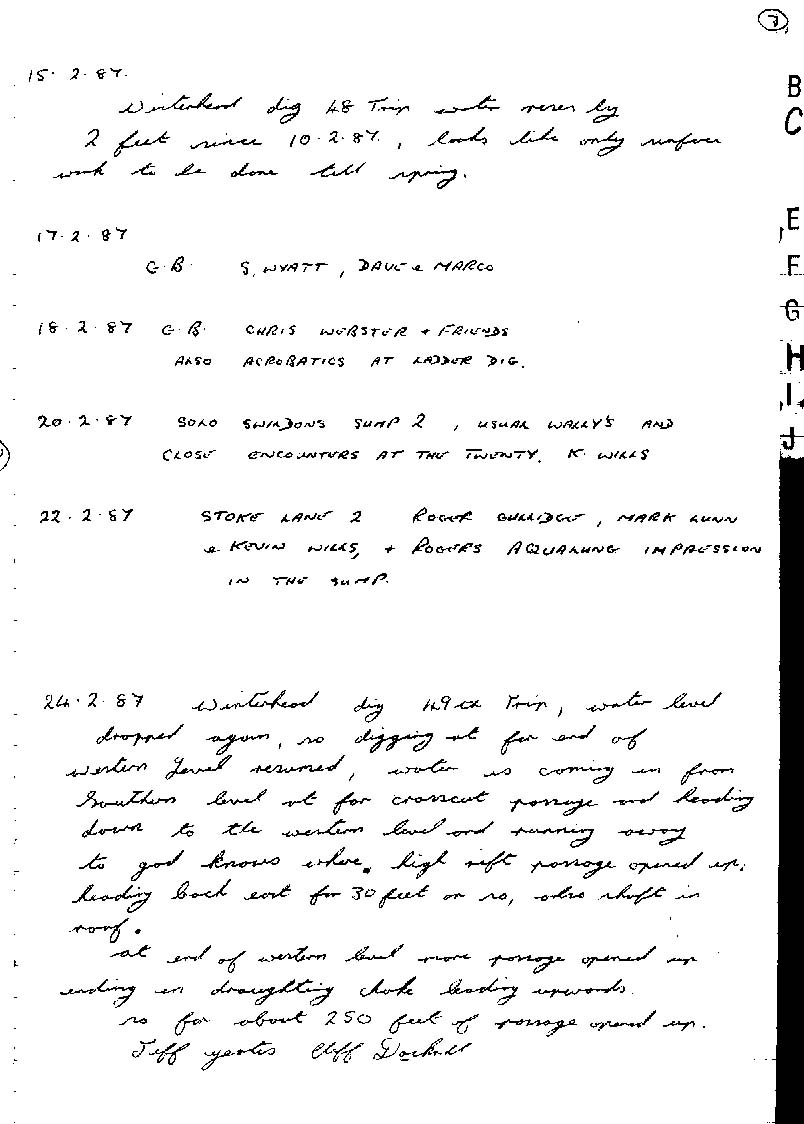 7
15.2.87.
Winterhead dig 48 Trip water risen by
2 feet since 10.2.87., looks like only surface
work to be done till spring.
17.2.87
G.B. S. WYATT, DAVE & MARCO
18.2.87 G.B. CHRIS WEBSTER + FRIENDS
ALSO ACROBATICS AT LADDER DIG.
20.2.87 SOLO SWILDONS SUMP 2, USUAL WALLY'S AND
CLOSE ENCOUNTERS AT THE TWENTY. K. WILLS
22.2.87 STOKE LANE 2 ROGER GULLIDGE, MARK LUNN
& KEVIN WILLS, + ROGERS AQUALUNG IMPRESSION
IN THE SUMP.
24.2.87 Winterhead dig 49th Trip, water level
dropped again, so digging at far end of
western level resumed, water is coming in from
Southern level at far crosscut passage and heading
down to the western level and running away
to god knows where. high rift passage opened up,
heading back east for 30 feet or so, also shaft in
roof.
at end of western level more passage opened up
ending in draughting choke leading upwards.
so far about 250 feet of passage opened up.
Jeff yeates Cliff
B
C
E
F
G
H
I
J